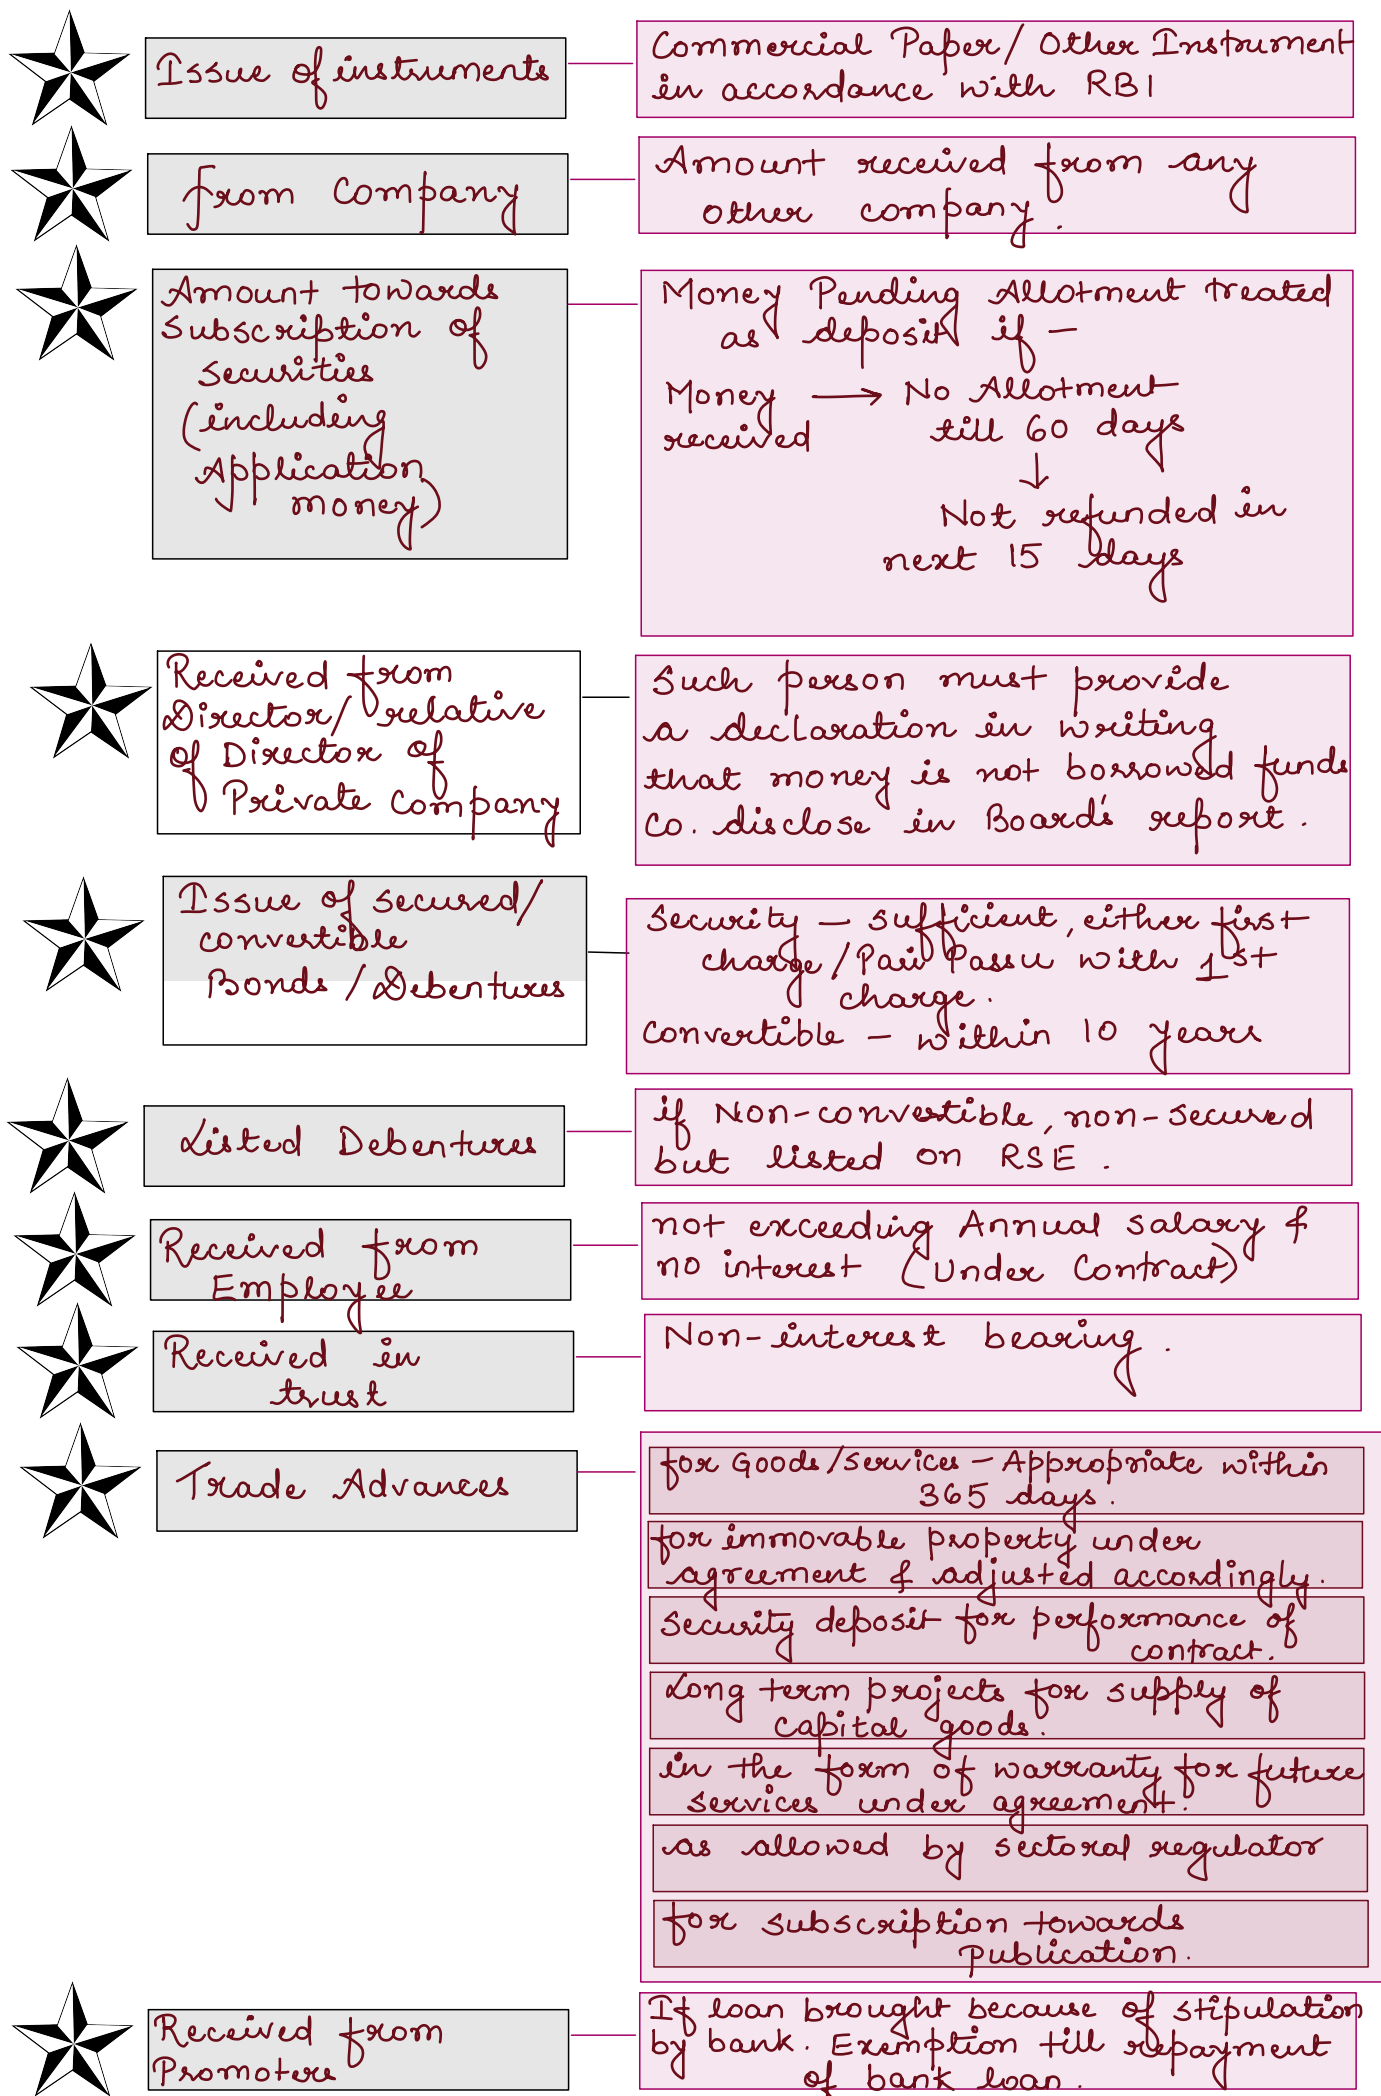 Issue of instruments
Commercial Paper/ Other Instrument
in accordance with RBI
from Company
Amount received from any
other company.
Amount towards
Subscription of
Securities
(including
Application
money)
Money Pending Allotment treated
as deposit if –
Money → No Allotment
received till 60 days
↓
Not refunded in
next 15 days
Received from
Director/ relative
of Director of
Private Company
Such person must provide
a declaration in writing
that money is not borrowed funds
Co. disclose in Board's report.
Issue of secured/
convertible
Bonds / Debentures
Security – sufficient, either first
charge /Pari Passu with 1st
charge.
Convertible – within 10 years
Listed Debentures
if Non-convertible, non-secured
but listed on RSE.
Received from
Employee
not exceeding Annual Salary &
no interest (Under Contract)
Received in
trust
Non-interest bearing.
Trade Advances
for Goods/Services – Appropriate within
365 days.
for immovable property under
agreement & adjusted accordingly.
Security deposit for performance of
contract.
Long term projects for supply of
capital goods.
in the form of warranty for future
services under agreement.
as allowed by sectoral regulator
for subscription towards
Publication.
Received from
Promoters
If loan brought because of stipulation
by bank. Exemption till repayment
of bank loan.